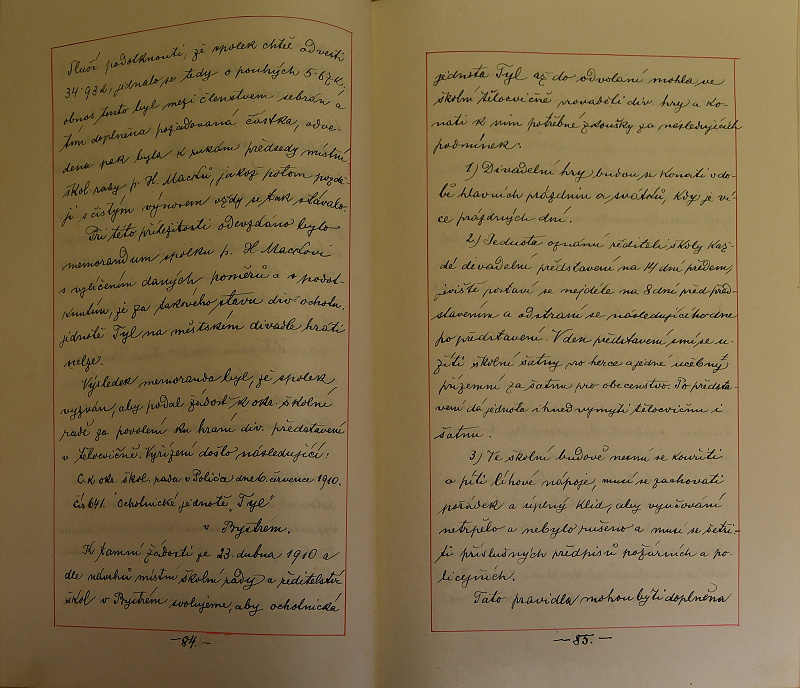 Sluší podotknouti, že spolek chtěl odvésti
34·93 K, jednalo se tedy o pouhých 5·67 K.
obnos tento byl mezi členstvem sebrán a
tím doplněna požadovaná částka, odve-
dena pak byla k rukám předsedy místní
škol. rady p. H. Macků, jakož potom pozdě-
ji s čistým výnosem vždy se tak stávalo.
Při této příležitosti odevzdáno bylo
memorandum spolku p. H. Mackovi
s vylíčením daných poměrů a s podot-
knutím, že za takového stavu div. ochotn.
jednotě Tyl na městském divadle hráti
nelze.
Výsledek memoranda byl, že spolek
vyzván, aby podal žádost k okr. školní
radě za povolení ku hraní div. představení
v tělocvičně. Vyřízení došlo následující:
C. k. okr. škol. rada v Poličce dne 6. července 1910.
čís 641. Ochotnické jednotě „Tyl"
v Bystrém.
K tamní žádosti ze 23. dubna 1910 a
dle návrhů místní školní rady a ředitelství
škol v Bystrém svolujeme, aby ochotnická
—84.—
jednota Tyl až do odvolání mohla ve
školní tělocvičně prováděti div. hry a ko-
nati k nim potřebné zkoušky za následujících
podmínek:
1) Divadelní hry budou se konati v do-
bě hlavních prázdnin a svátků, kdy je ví-
ce prázdných dní.
2) Jednota oznámí řediteli školy kaž-
dé divadelní představení na 14 dní předem,
jeviště postaví se nejdéle na 8 dní před před-
stavením a odstraní se následujícího dne
po představení. V den představení smí se u-
žíti školní šatny pro herce a jedné učebny
přízemní za šatnu pro obecenstvo. Po předsta-
vení dá jednota ihned vymýti tělocvičnu i
šatnu.
3) Ve školní budově nesmí se kouřiti
a píti lihové nápoje, musí se zachovati
pořádek a úplný klid, aby vyučování
netrpělo a nebylo rušeno a musí se šetři-
ti příslušných předpisů požárních a po-
licejních.
Tato pravidla mohou býti doplněna
—85.—